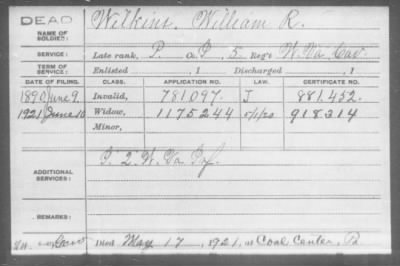 DEAD
NAME OF SOLDIER: Wilkins, William R.
SERVICE: Late rank, P. Co. I, 5 Reg't W. Va. Cav.
TERM OF SERVICE: Enlisted , 1 Discharged , 1
DATE OF FILING. CLASS. APPLICATION NO. LAW. CERTIFICATE NO.
1890 June 9. Invalid, 781.097. J 881.452.
1921 June 10 Widow, 1175244 5/1/20 918314
Minor,
ADDITIONAL SERVICES: I. 2. W. Va Inf.
REMARKS:
Died May 17, 1921, at Coal Center, Pa